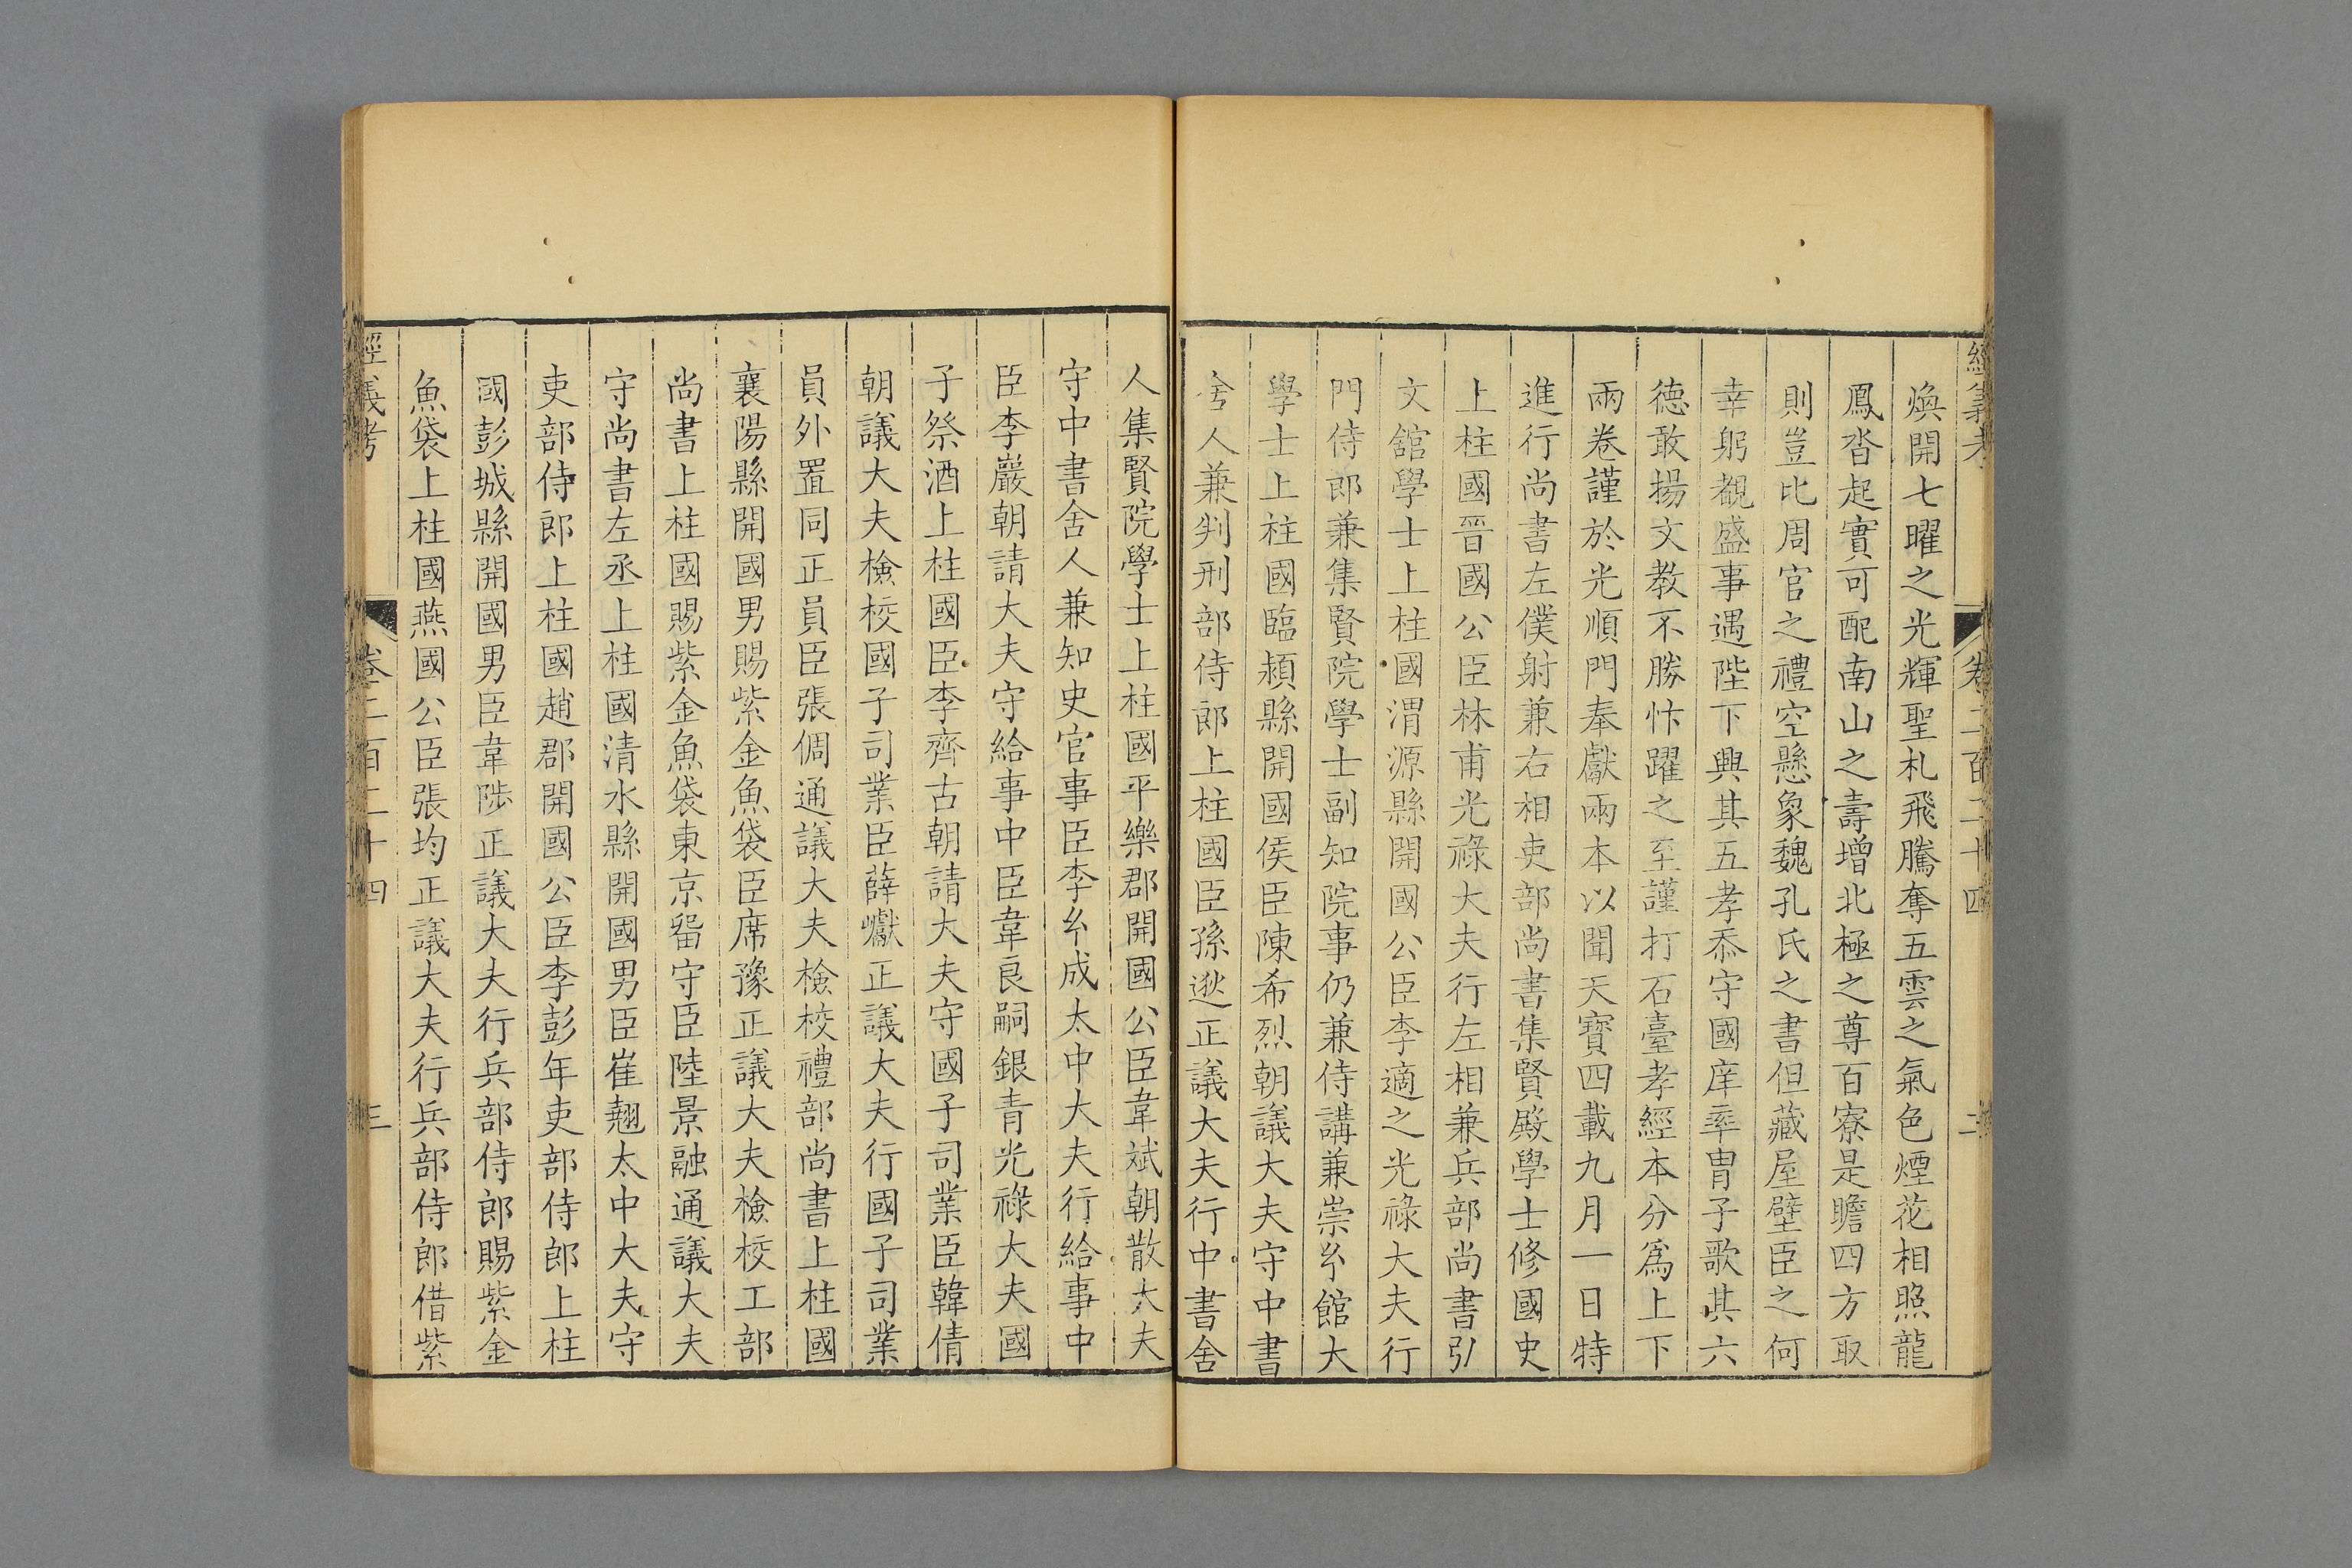 煥開七曜之光輝聖札飛騰奪五雲之氣色煙花相照龍
鳳沓起實可配南山之壽增北極之尊百寮是瞻四方取
則豈比周官之禮空懸象魏孔氏之書但藏屋壁臣之何
幸躬覩盛事遇陛下興其五孝忝守國庠率冑子歌其六
德敢揚文教不勝忭躍之至謹打石臺孝經本分爲上下
兩卷謹於光順門奉獻兩本以聞天寶四載九月一日特
進行尚書左僕射兼右相吏部尚書集賢殿學士修國史
上柱國晉國公臣林甫光祿大夫行左相兼兵部尚書引
文舘學士上柱國渭源縣開國公臣李適之光祿大夫行
門侍郎兼集賢院學士副知院事仍兼侍講兼崇𤣥館大
學士上柱國臨潁縣開國侯臣陳希烈朝議大夫守中書
舍人兼判刑部侍郎上柱國臣孫逖正議大夫行中書舍
人集賢院學士上柱國平樂郡開國公臣韋斌朝散大夫
守中書舍人兼知史官事臣李𤣥成太中大夫行給事中
臣李巖朝請大夫守給事中臣韋良嗣銀青光祿大夫國
子祭酒上柱國臣李齊古朝請大夫守國子司業臣韓倩
朝議大夫檢校國子司業臣薛巘正議大夫行國子司業
員外置同正員臣張倜通議大夫檢校禮部尚書上柱國
襄陽縣開國男賜紫金魚袋臣席豫正議大夫檢校工部
尚書上柱國賜紫金魚袋東京畱守臣陸景融通議大夫
守尚書左丞上柱國清水縣開國男臣崔翹太中大夫守
吏部侍郎上柱國趙郡開國公臣李彭年吏部侍郎上柱
國彭城縣開國男臣韋陟正議大夫行兵部侍郎賜紫金
魚袋上柱國燕國公臣張均正議大夫行兵部侍郎借紫
經義考 卷二百二十四 三